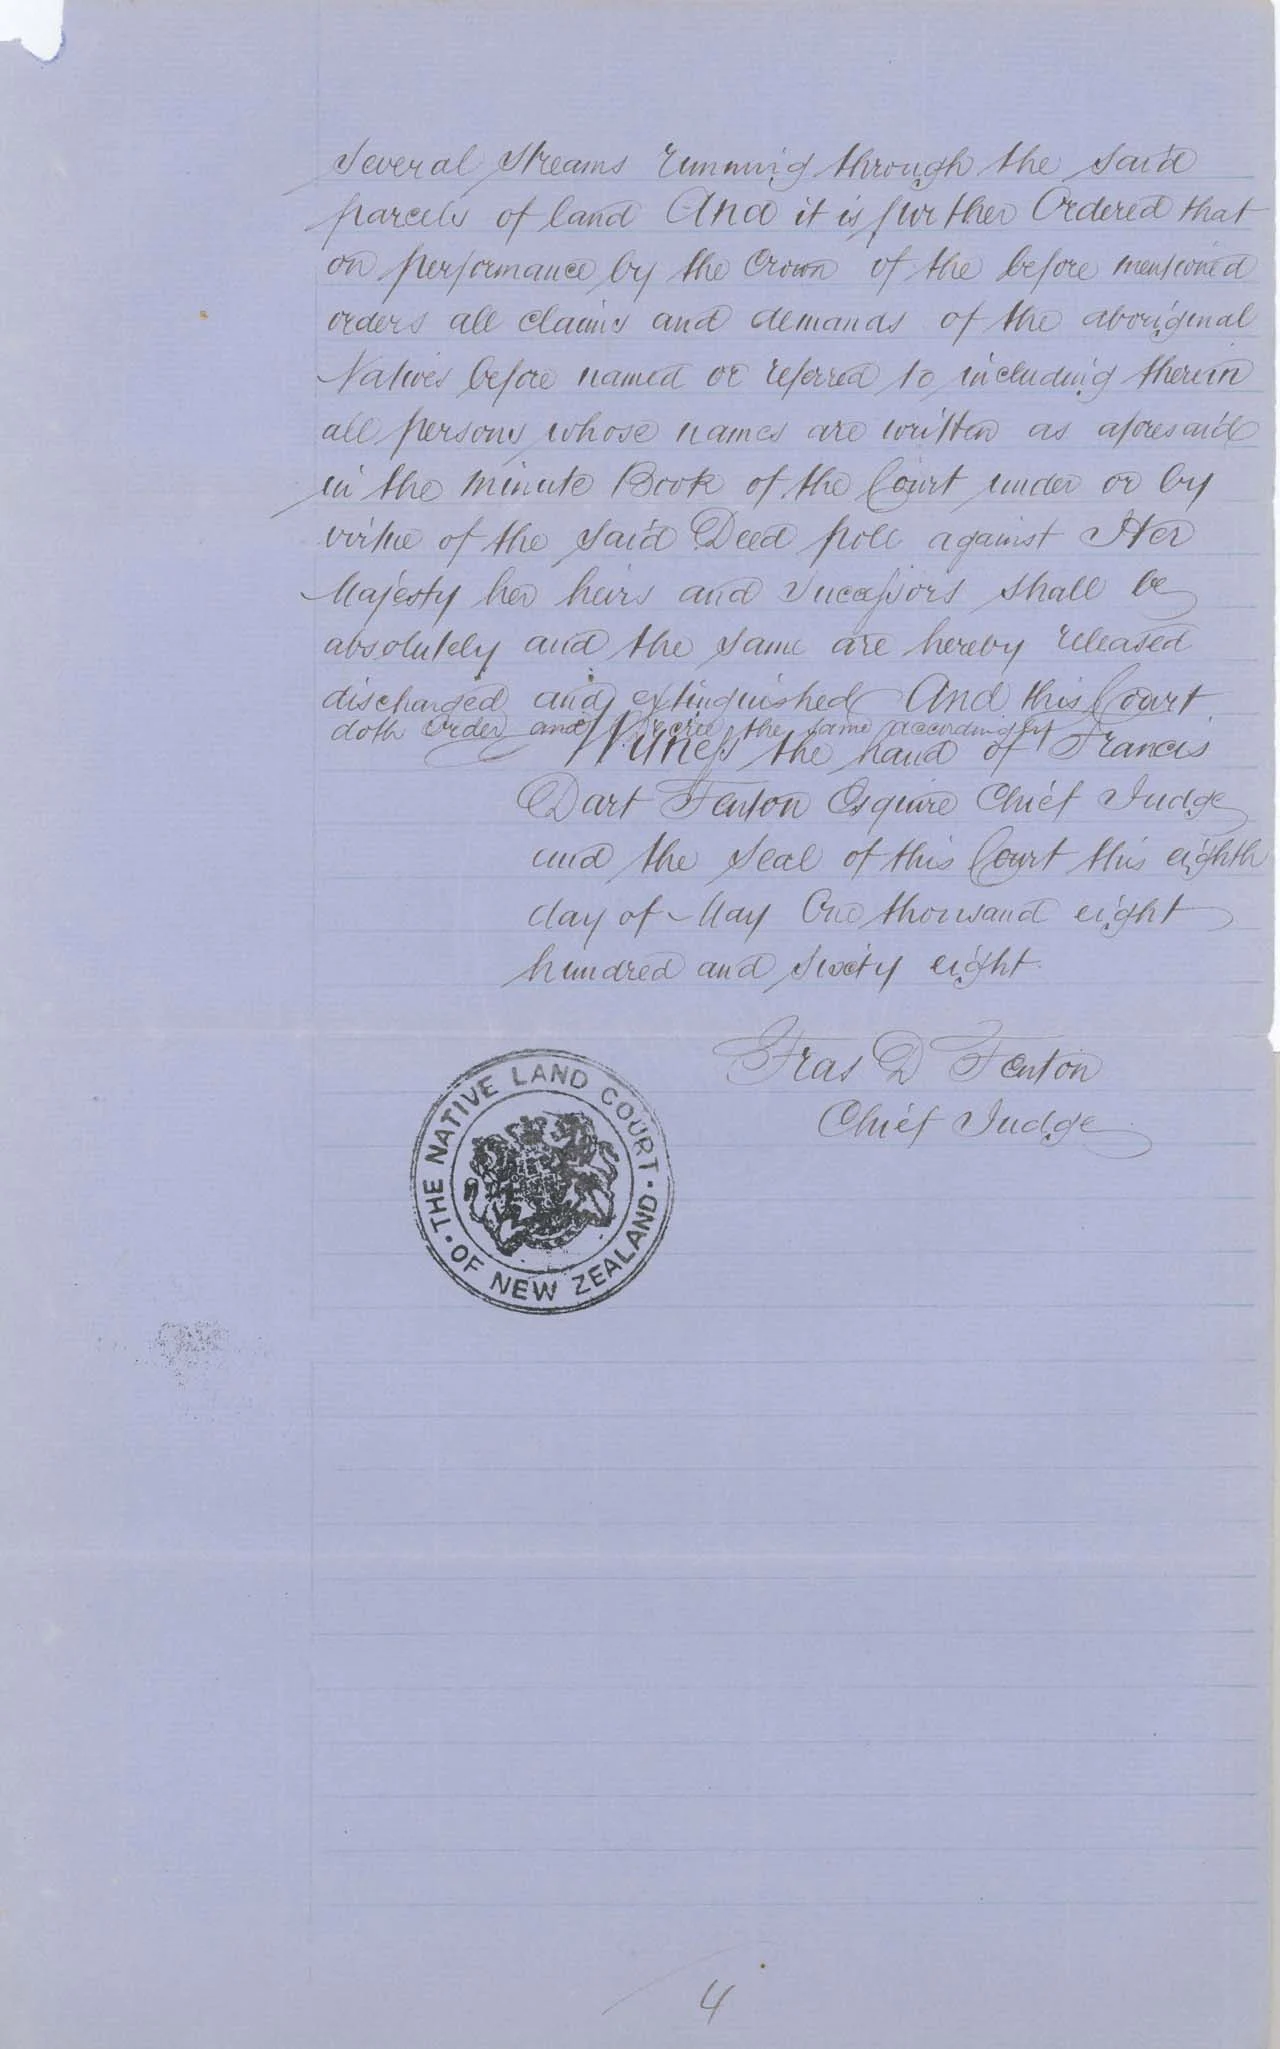 several streams running through the said
parcels of land And it is further Ordered that
on performance by the Crown of the before mentioned
orders all claims and demands of the aboriginal
Natives before named or referred to including therein
all persons whose names are written as aforesaid
in the minute Book of the Court under or by
virtue of the said Deed poll against Her
Majesty her heirs and successors shall be
absolutely and the same are hereby released
discharged and extinguished And this Court
doth order and Decree the same accordingly
Witness the hand of Francis
Dart Fenton Esquire Chief Judge
and the Seal of this Court this eighth
day of May One thousand eight
hundred and sixty eight.
Fras D Fenton
Chief Judge
THE NATIVE LAND COURT · OF NEW ZEALAND ·
4